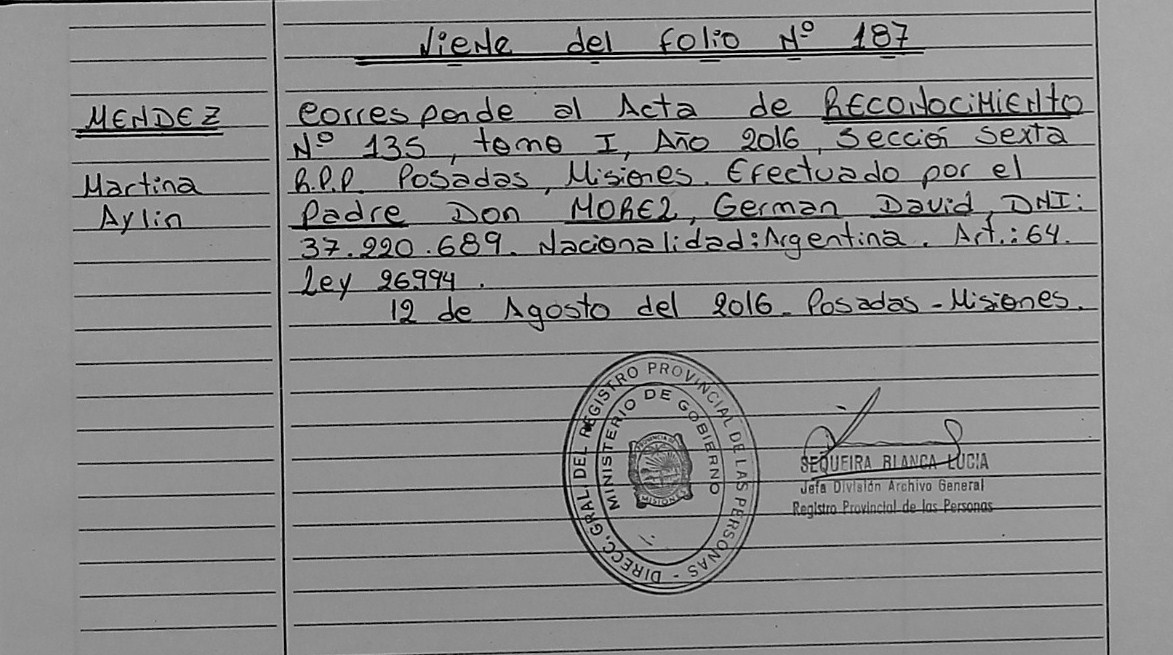 Viene del folio Nº 187
MENDEZ
Martina
Aylin
corresponde al Acta de RECONOCIMIENTO
Nº 135, tomo I, Año 2016, Sección Sexta
R.P.P. Posadas, Misiones. Efectuado por el
Padre Don MOREZ, German David, DNI:
37.220.689. Nacionalidad: Argentina. Art.: 64.
Ley 26994.
12 de Agosto del 2016- Posadas - Misiones.
DIRECC. GRAL. DEL REGISTRO PROVINCIAL DE LAS PERSONAS -
MINISTERIO DE GOBIERNO
PROVINCIA DE
MISIONES
SEQUEIRA BLANCA LUCIA
Jefa División Archivo General
Registro Provincial de las Personas